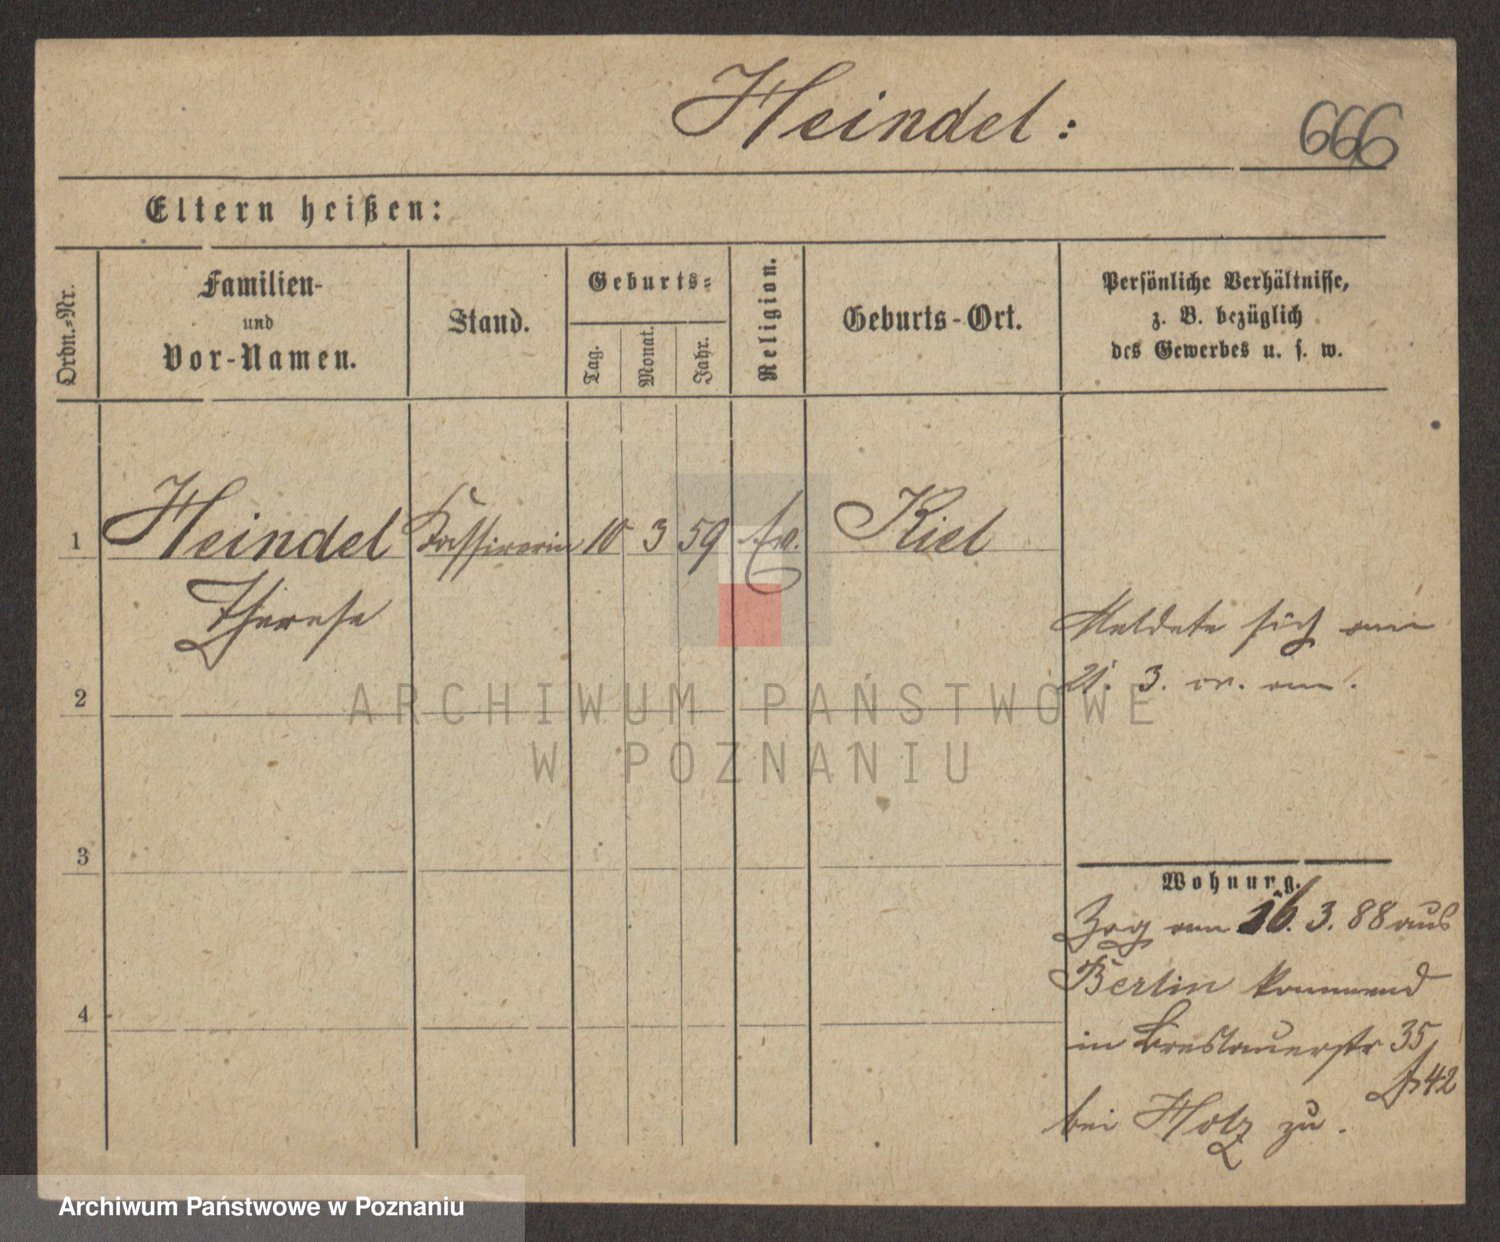 Heindel:
666
Eltern heißen:
Ordn.-Nr.
Familien-
und
Vor-Namen.
Stand.
Geburts-
Tag.
Monat.
Jahr.
Religion.
Geburts-Ort.
Persönliche Verhältnisse,
z. B. bezüglich
des Gewerbes u. s. w.
1 Heindel Kassirerin 10 3 59 Ev. Kiel
Therese
Meldete sich am
21. 3. cr. an.
2
3
4
Wohnung.
Zog am 16. 3. 88 aus
Berlin kommend
in Breslauerstr 35
42
bei Holz zu.
ARCHIWUM PAŃSTWOWE
W POZNANIU
Archiwum Państwowe w Poznaniu